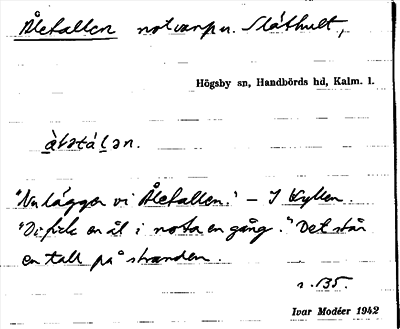 Åletallen notvarpn. Slåthult,
Högsby sn, Handbörds hd, Kalm. l.
"Nu lägger vi Åletallen." – I Kyllen.
"Di fick en ål i nota en gång." Det står
en tall på stranden.
s. 135.
Ivar Modéer 1942